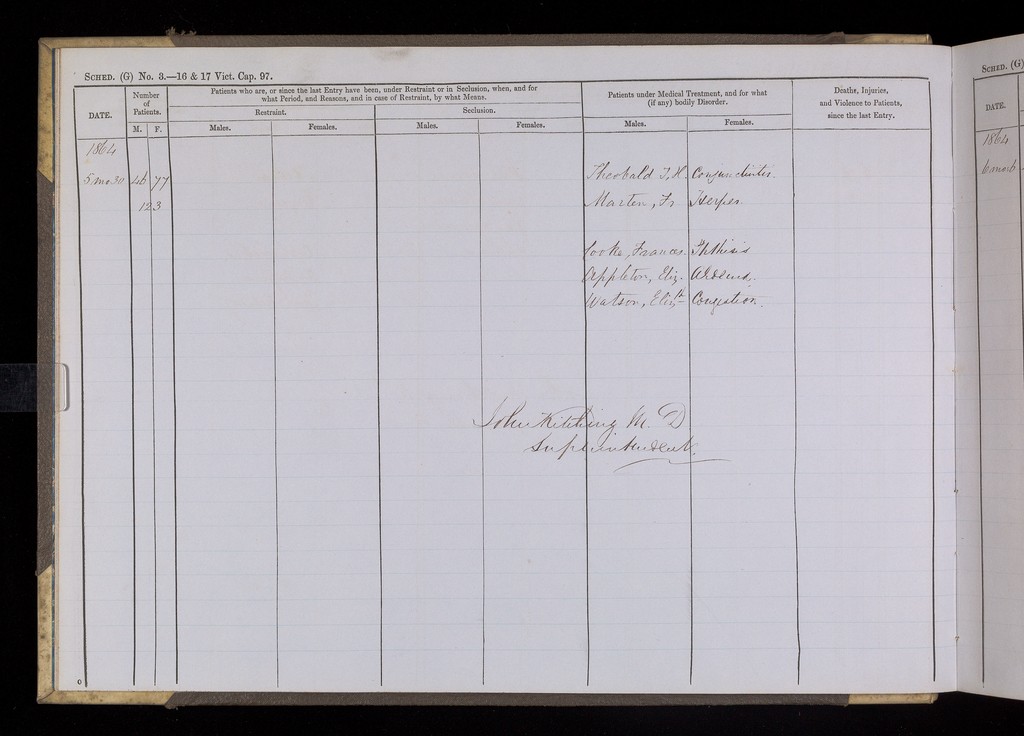 SCHED. (G) No. 3.—16 & 17 Vict. Cap. 97.
DATE.
Number
of
Patients.
M. F.
Patients who are, or since the last Entry have been, under Restraint or in Seclusion, when, and for
what Period, and Reasons, and in case of Restraint, by what Means.
Restraint.
Seclusion.
Males. Females. Males. Females.
Patients under Medical Treatment, and for what
(if any) bodily Disorder.
Males. Females.
Deaths, Injuries,
and Violence to Patients,
since the last Entry.
1864
5 mo 30 46 77 Theobald J. H. Conjunctivitis.
123 Marten, Fr Herpes.
Cooke, Frances. Phthisis
Appleton, Eliz.
Watson, Elizth Congestion.
John Kitching M. D
Superintendent.
0
SCHED. (G)
DATE.
1864
6 mo 6